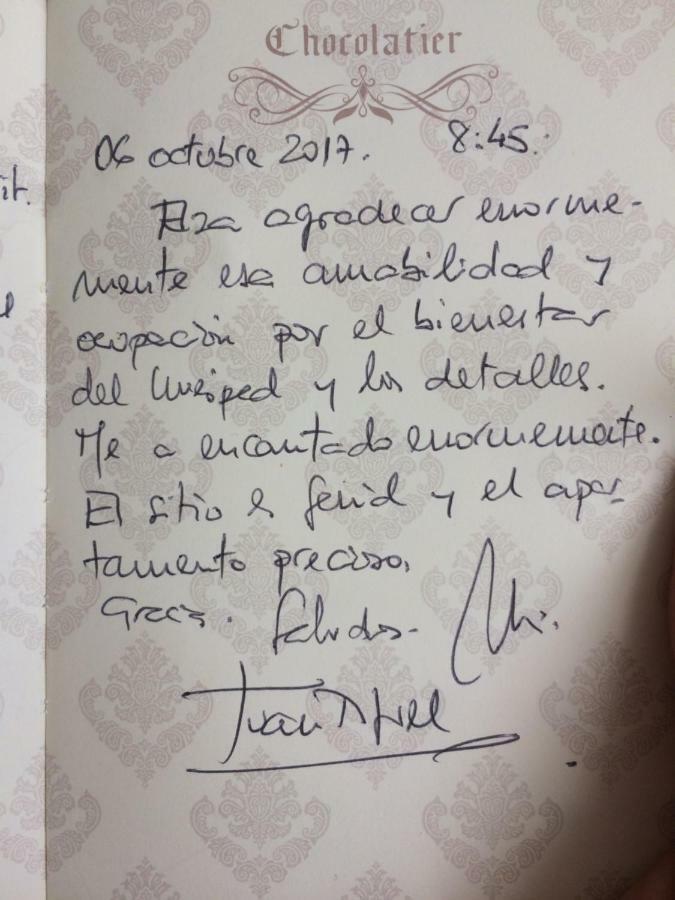 Chocolatier
06 octubre 2017. 8:45.
agradecer enorme-
mente esa amabilidad y
ocupación por el bienestar
del y los detalles.
Me a encantado enormemente.
El sitio es genial y el apar-
tamento precioso.
Gracias. Saludos.
Juan
it.